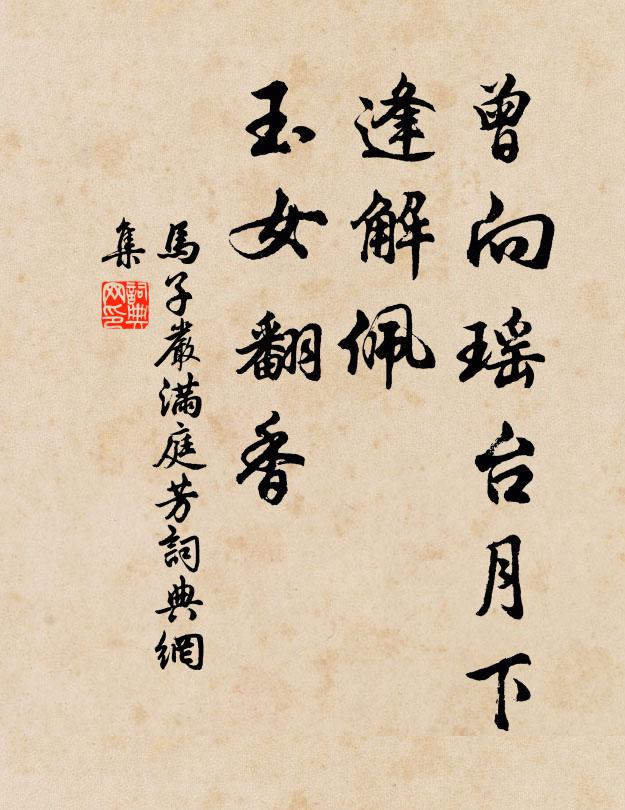 曾向瑶台月下
逢解佩
玉女翻香
馬子嚴滿庭芳詞典網
集
詞典
网印